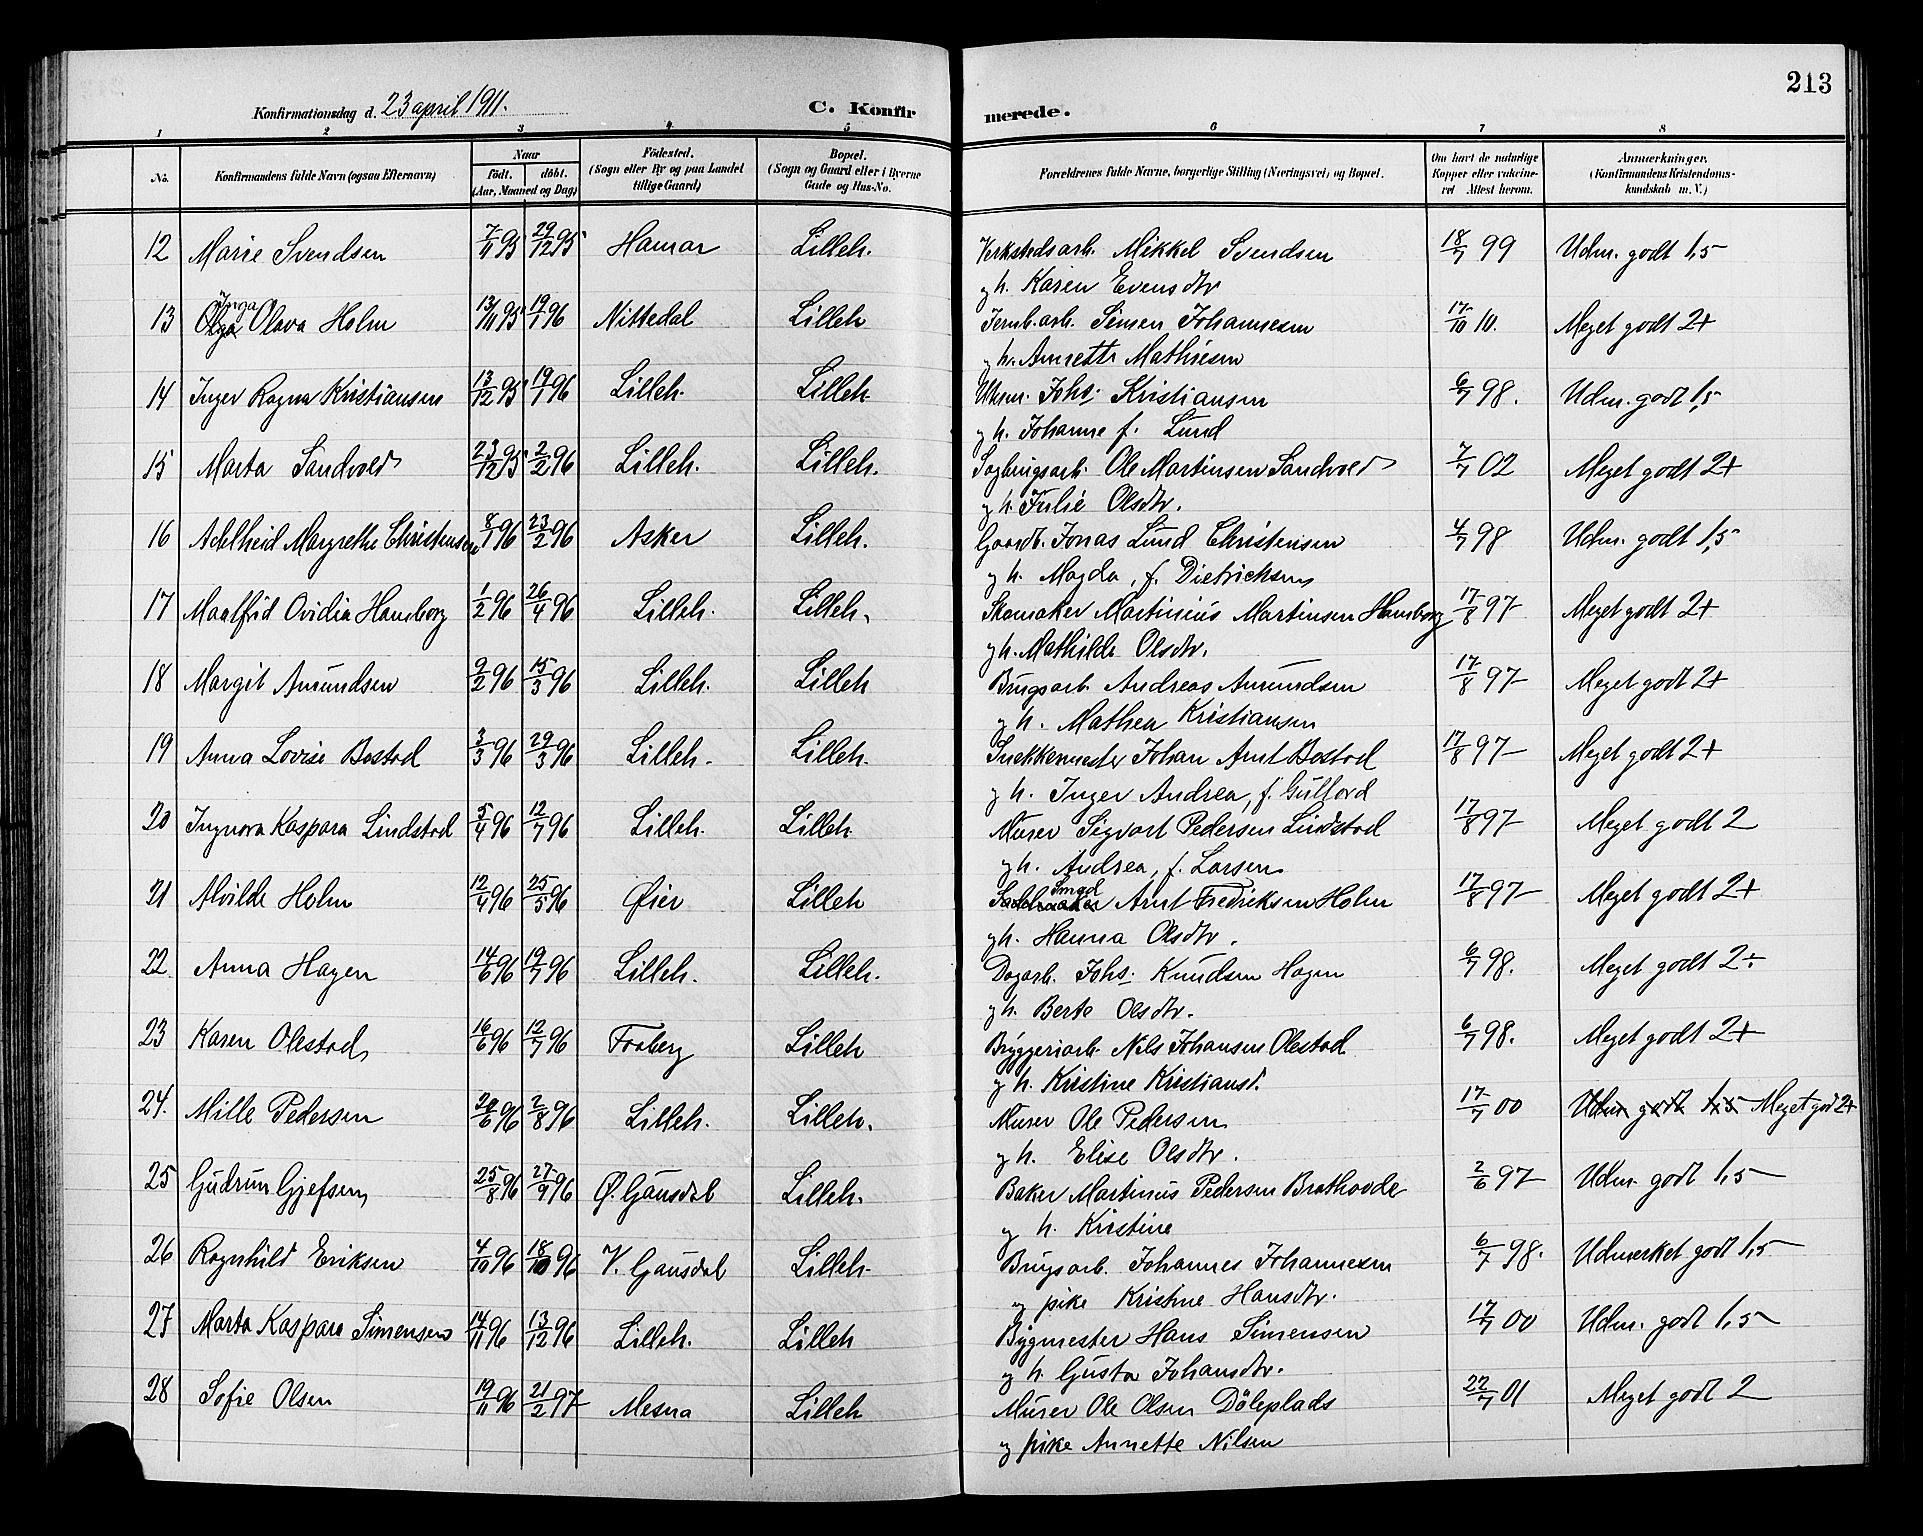 213
Konfirmationsdag d. 23 april 1911. C. Konfirmerede.
1 2 3 4 5 6 7 8
No. Konfirmandens fulde Navn (ogsaa Efternavn) Naar født. døbt. (Aar, Maaned og Dag) Födested. (Sogn eller By og paa Landet tillige Gaard) Bopæl. (Sogn og Gaard eller i Byerne Gade og Hus-No. Forældrenes fulde Navne, borgerlige Stilling (Næringsvei) og Bopæl. Om havt de naturlige Kopper eller vakcineret Attest herom. Anmærkninger. (Konfirmandens Kristendomskundskab m. V.)
12 Marie Svendsen 7/11 95 29/12 95 Hamar Lilleh. Verkstedsarb. Mikkel Svendsen 18/7 99 Udm. godt 1,5
og h. Karen Evensdtr
13 Olga Inga Olava Holm 13/11 95 19/1 96 Nittedal Lilleh Jernb.arb. Simen Johannesen 17/10 10. Meget godt 2+
og h. Annette Mathisen
14 Inger Ragna Kristiansen 13/12 95 19/1 96 Lilleh. Lilleh. Johs. Kristiansen 6/7 98. Udm. godt 1,5
og h. Johanne f. Lund
15 Marta Sandvold 23/12 95 2/2 96 Lilleh. Lilleh. Sagbrugsarb. Ole Martinsen Sandvold 7/7 02 Meget godt 2+
og h. Julie Olsdtr.
16 Adelheid Margrethe Christensen 8/1 96 23/2 96 Asker Lilleh. Gaardb. Jonas Lund Christensen 4/7 98 Udm. godt 1,5
og h. Magda, f. Dietrichsen
17 Maalfrid Ovidia Hamborg 1/2 96 26/4 96 Lilleh. Lilleh. Skomaker Martinius Martinsen Hamborg 17/8 97 Meget godt 2+
og h. Mathilde Olsdtr.
18 Margit Amundsen 9/2 96 15/3 96 Lilleh. Lilleh Brugsarb. Andreas Amundsen 17/8 97 Meget godt 2+
og h. Mathea Kristiansen
19 Anna Lovise Bostad 3/3 96 29/3 96 Lilleh. Lilleh. Snekkermester Johan Arnt Bostad 17/8 97 Meget godt 2+
og h. Inger Andrea, f. Gullord
20 Ingvora Kaspara Lindstad 5/4 96 12/7 96 Lilleh. Lilleh Murer Sigvart Pedersen Lindstad 17/8 97 Meget godt 2
og h. Andrea, f. Larsen
21 Alvilde Holm 12/4 96 25/5 96 Øier Lilleh Sadelmaker Smed Arnt Fredriksen Holm 17/8 97 Meget godt 2+
og h. Hanna Olsdtr.
22. Anna Hagen 14/6 96 19/7 96 Lilleh. Lilleh. Dagarb. Johs. Knudsen Hagen 6/7 98. Meget godt 2÷
og h. Berte Olsdtr.
23 Karen Olestad 16/6 96 12/7 96 Faaberg Lilleh Bryggeriarb. Nils Johansen Olestad 6/7 98. Meget godt 2+
og h. Kristine Kristiansd.
24. Mille Pedersen /6 96 2/8 96 Lilleh. Lilleh. Murer Ole Pedersen 17/7 00 Udm godt 1,5 Meget god 2+
og h. Elise Olsdtr.
25 Gudrun Gjefsen 25/8 96 27/9 96 Ø. Gausdal Lilleh. Baker Martinus Pedersen Brathovde 2/6 97 Udm. godt 1,5
og h. Kristine
26 Ragnhild Eriksen 4/10 96 18/10 96 V. Gausdal Lilleh. Brugsarb. Johannes Johannesen 6/7 98. Udmerket godt 1,5
og pike Kristine Hansdtr.
27 Marta Kaspara Simensen 14/11 96 13/12 96 Lilleh. Lilleh Bygmester Hans Simensen 17/7 00 Udm. godt 1,5
og h. Gusta Johansdtr.
28 Sofie Olsen 19/11 96 21/2 97 Mesna Lilleh Murer Ole Olsen Döleplads 22/7 01 Meget godt 2
og pike Annette Nilsen